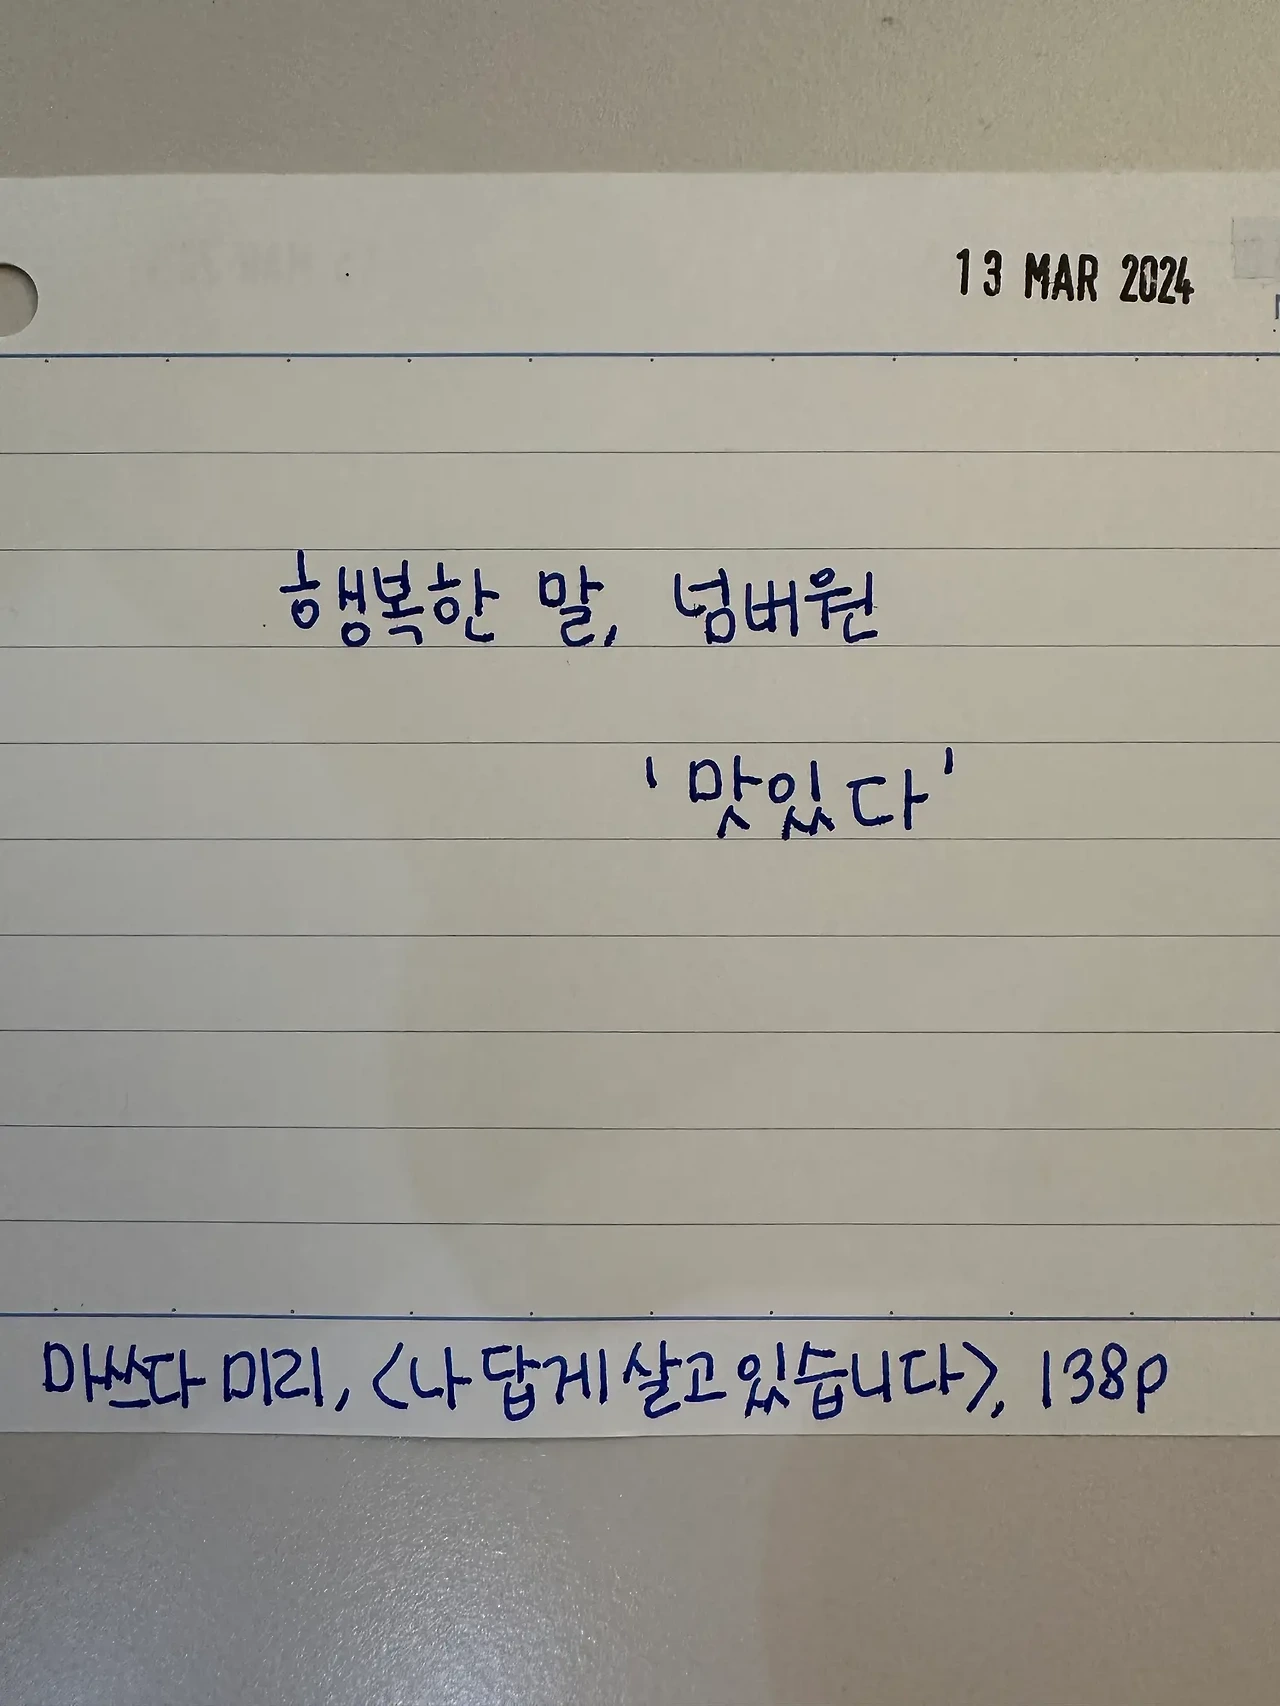 13 MAR 2024
행복한 말, 넘버원
'맛있다'
마쓰다 미리, <나답게 살고 있습니다>, 138p